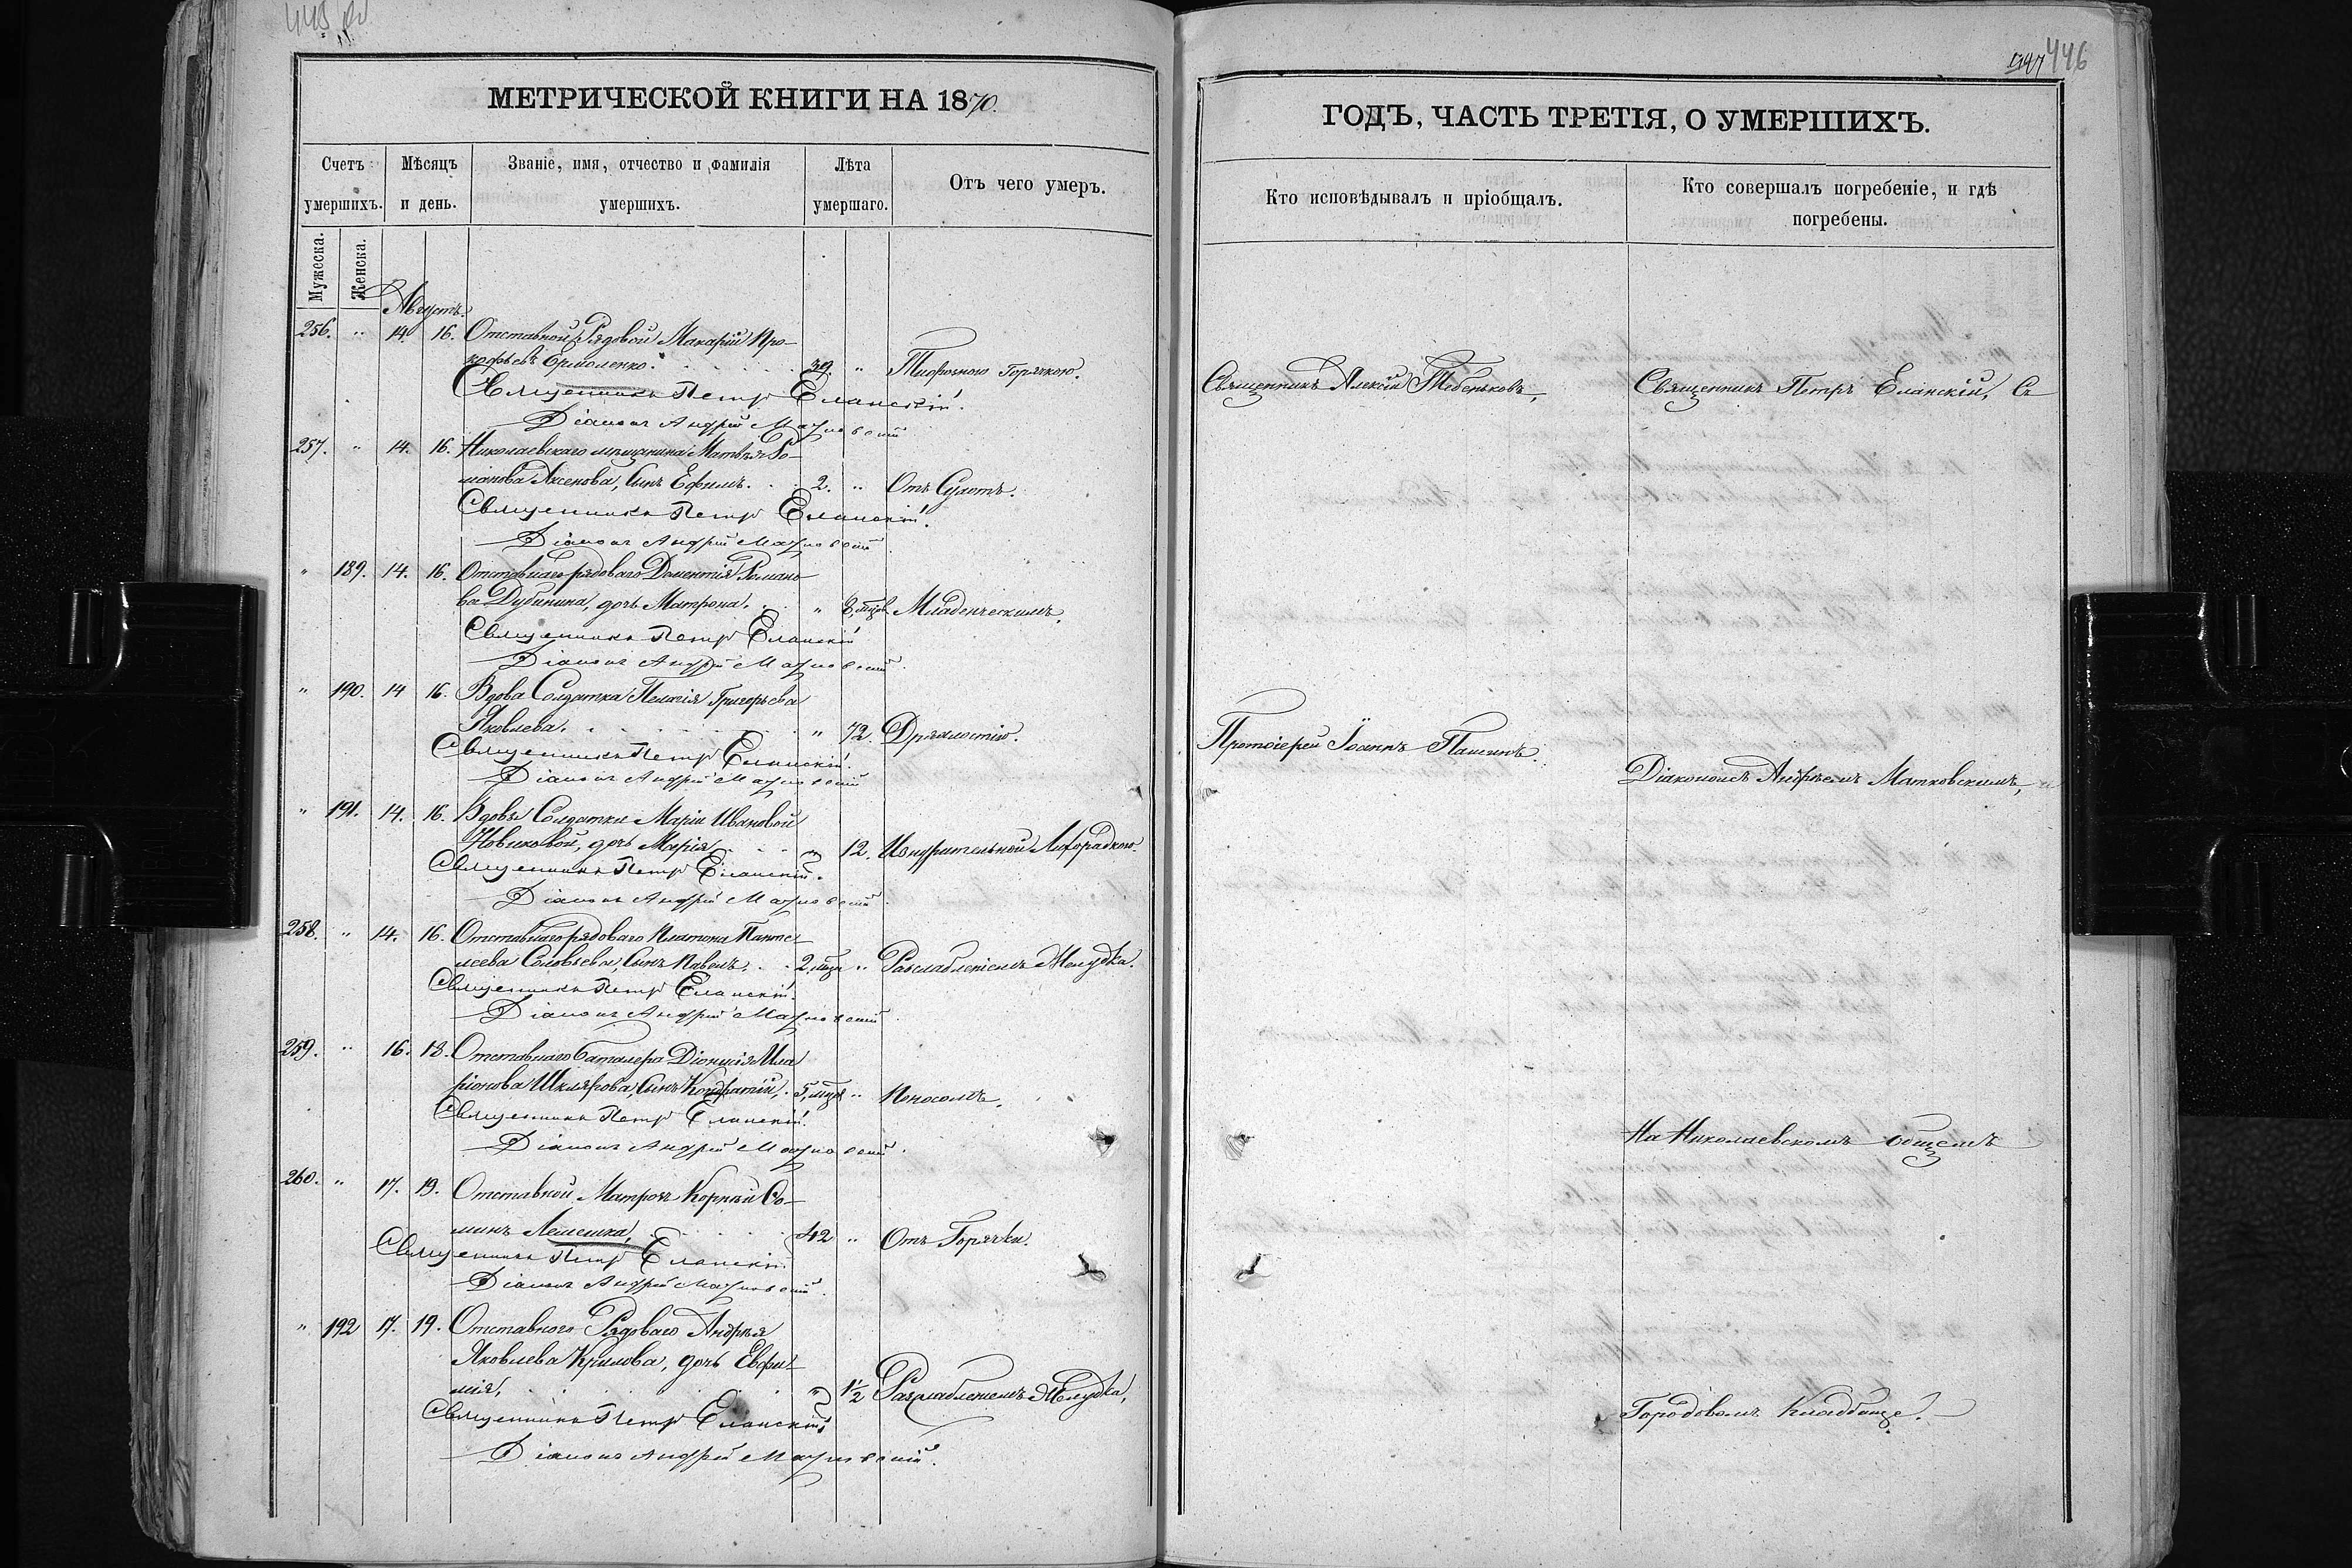 446
МЕТРИЧЕСКОЙ КНИГИ НА 1870.
ГОДЪ, ЧАСТЬ ТРЕТІЯ, О УМЕРШИХЪ.
Счетъ умершихъ.
Мѣсяцъ и день.
Званіе, имя, отчество и фамилія умершихъ.
Лѣта умершаго.
Отъ чего умеръ.
Кто исповѣдывалъ и пріобщалъ.
Кто совершалъ погребеніе, и гдѣ погребены.
Мужеска.
Женска.
Августъ.
256. " 14 16. Отставной Рядовой Макарій Про-
кофьевъ Ермоленко. 39. " Тифозною Горячкою.
Священникъ Алексій Тебеньковъ,
Священникъ Петръ Еланскій, Съ
Священникъ Петръ Еланскій.
Діаконъ Андрей Матковскій
257. " 14. 16. Николаевскаго мѣщанина Матвѣя Ро-
манова Аксенова, сынъ Ефимъ. 2. " Отъ Сухотъ.
Священникъ Петръ Еланскій.
Діаконъ Андрей Матковскій
" 189. 14. 16. Отставнаго рядоваго Дементія Романо-
ва Дубинина, дочь Матрона. " 8, мцов. Младенческимъ.
Священникъ Петръ Еланскій
Діаконъ Андрей Матковскій.
" 190. 14 16. Вдова Солдатка Пелагія Григорьева
Яковлева. " 72. Дряхлостію.
Протоіерей Іоаннъ
Священникъ Петръ Еланскій.
Діаконъ Андрей Матковскій
Діакономъ Андреемъ Матковскимъ,
" 191. 14. 16. Вдовы Солдатки Маріи Ивановой
Новиковой, дочь Марія " 12. Изнурительной Лихорадкою.
Священникъ Петръ Еланскій.
Діаконъ Андрей Матковскій.
258. " 14. 16. Отставнаго рядоваго Платона Панте-
леева Соловьева, сынъ Павелъ. 2, мца " Разслабленіемъ Желудка.
Священникъ Петръ Еланскій.
Діаконъ Андрей Матковскій.
259. " 16. 18. Отставнаго баталера Діонисія Ила-
ріонова Шклярова, сынъ Кондратій, 5, мцев " Поносомъ.
Священникъ Петръ Еланскій.
Діаконъ Андрей Матковскій.
На Николаевскомъ общемъ
260. " 17. 19. Отставной Матрозъ Корнѣй Ѳо-
минъ Лемешка, 42 " Отъ Горячки.
Священникъ Петръ Еланскій
Діаконъ Андрей Матковскій.
" 192 17. 19. Отставного Рядоваго Андрея
Яковлева Крилова, дочь Евфи-
мія, " 1/2 Разслабленіемъ Желудка,
Священникъ Петръ Еланскій
Городовомъ Кладбище.
Діаконъ Андрей Матковскій.